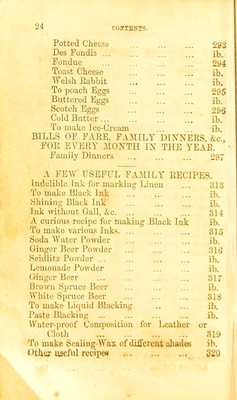 24 CONTENTS.
Potted Cheese ... ... ... 293
Des Fondis ... ... ... ... ib.
Fondue ... ... ... ... 294
Toast Cheese ... ... ... ib.
Welsh Rabbit ... ... ... ib.
To poach Eggs ... ... ... 295
Buttered Eggs ... ... ... ib.
Scotch Eggs ... ... ... 296
Cold Butter ... ... ... ... ib.
To make Ice-Cream ... ... ib.
BILLS OF FARE, FAMILY DINNERS, &c.,
FOR EVERY MONTH IN THE YEAR.
Family Dinners ... ... ... 297
A FEW USEFUL FAMILY RECIPES.
Indelible Ink for marking Linen ... 313
To make Black Ink ... ... ... ib.
Shining Black Ink ... ... ... ib.
Ink without Gall, &c. ... ... ... 314
A curious recipe for making Black Ink ib.
To make various Inks. ... ... ... 315
Soda Water Powder ... ... ... ib.
Ginger Beer Powder ... ... ... 316
Seidlitz Powder ... ... ... ... ib.
Lemonade Powder ... ... ... ib.
Ginger Beer ... ... ... ... 317
Brown Spruce Beer ... ... ... ib.
White Spruce Beer ... ... ... 318
To make Liquid Blacking ... ... ib.
Paste Blacking ... ... ... ... ib.
Water-proof Composition for Leather or
Cloth ... ... ... ... 319
To make Sealing-Wax of different shades ib.
Other useful recipes ... ... ... 320